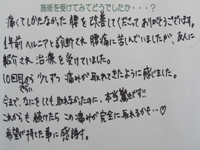 施術を受けてみてどうでしたか・・・?
痛くてしかたなかった腰を改善してくださってありがとうございます。
1年前ヘルニアと診断され腰痛に苦しんでいましたが、友人に
紹介され治療を受けていました。
10回目くらいから少しずつ痛みが取れてきたように感じました。
今まで、なにをしても取れなかったのに、本当驚きです!!
これからも続けたらこの痛みが完全に取れるかも…♡
希望が持てた事に感謝す。